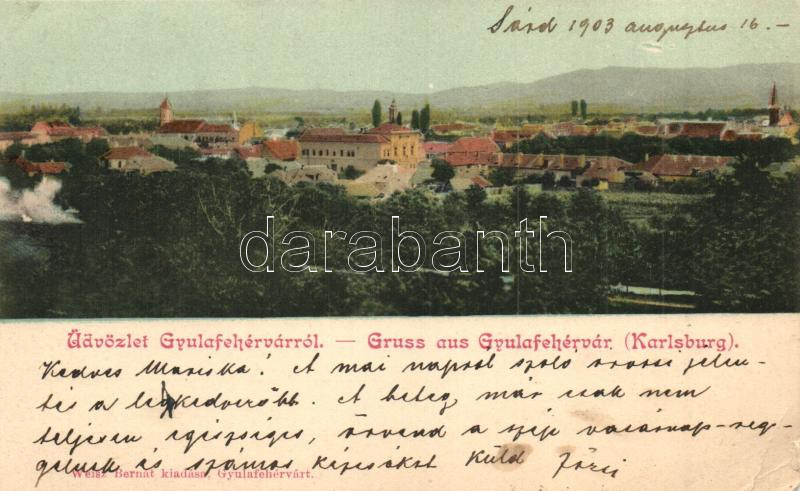 Sárd 1903 augusztus 16. -
darabanth
Üdvözlet Gyulafehérvárról. — Gruss aus Gyulafehérvár (Karlsburg).
Kedves Mariska! A mai napról szóló orvosi jelen-
tés a legkedvezőbb. A beteg, már csak nem
teljesen egészséges, örvend a szép vasárnap-reg-
gelnek és számos kézcsókot küld Józsi
Weisz Bernát kiadása, Gyulafehérvárt.